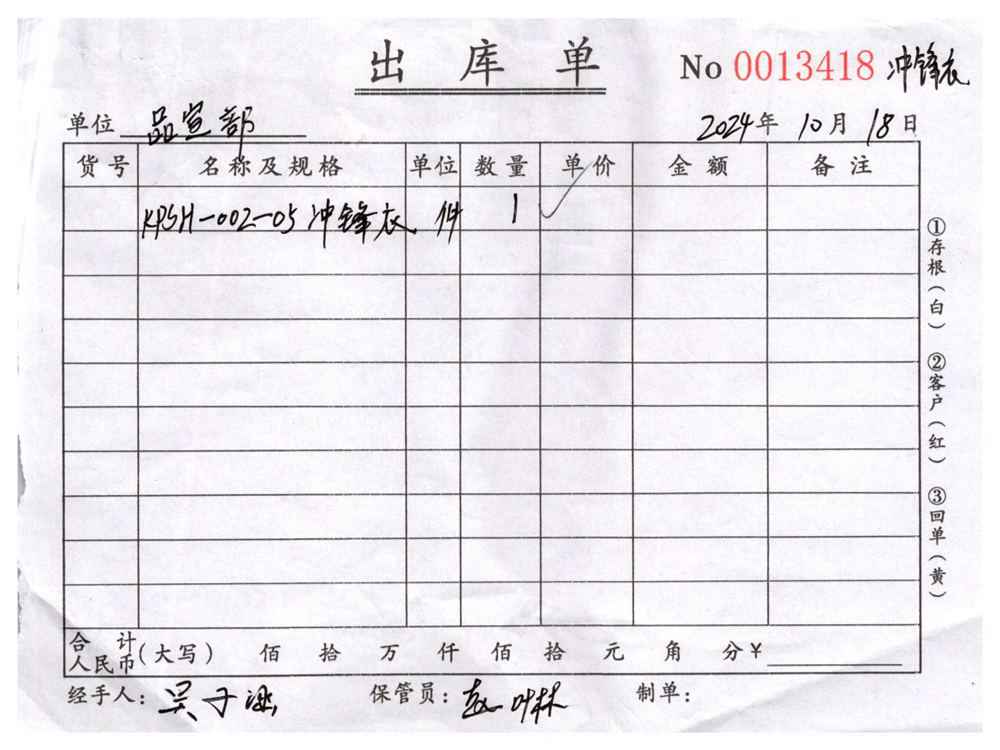 出库单
No 0013418 冲锋衣
单位 品宣部 2024年 10月 18日
货号 名称及规格 单位 数量 单价 金额 备注
KPSH-002-05 冲锋衣 件 1 ✓
合计人民币(大写) 佰 拾 万 仟 佰 拾 元 角 分 ¥
经手人: 吴子涵 保管员: 赵叶林 制单:
①存根(白) ②客户(红) ③回单(黄)